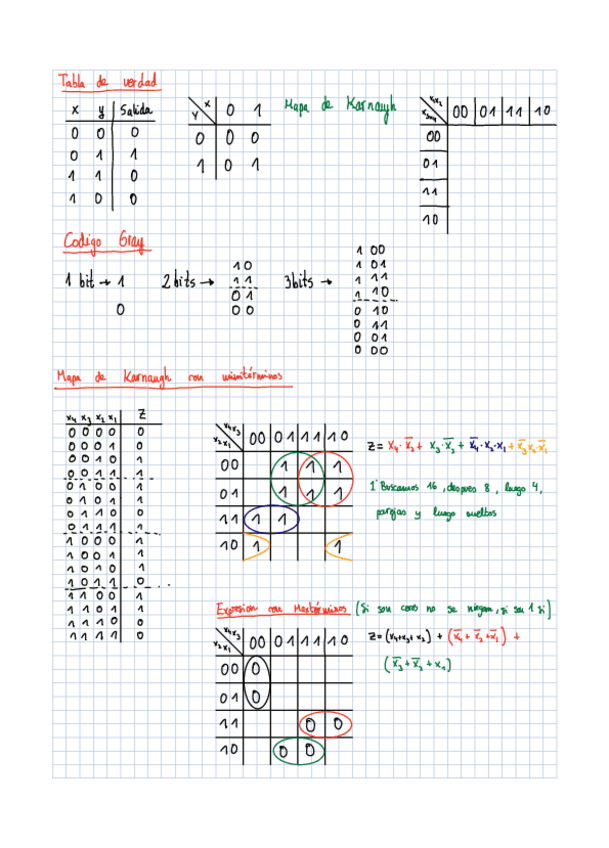 Tabla de verdad
x y Salida
0 0 0
0 1 1
1 1 0
1 0 0
x
y 0 1
0 0 0
1 0 1
Mapa de Karnaugh
x₁x₂
x₃x₄ 00 01 11 10
00
01
11
10
Codigo Gray
1 bit → 1
0
2 bits →
10
11
01
00
3 bits →
1 00
1 01
1 11
1 10
0 10
0 11
0 01
0 00
Mapa de Karnaugh con minitérminos
x₄ x₃ x₂ x₁ Z
0 0 0 0 0
0 0 0 1 0
0 0 1 0 1
0 0 1 1 1
0 1 0 0 1
0 1 0 1 1
0 1 1 0 0
0 1 1 1 1
1 0 0 0 1
1 0 0 1 1
1 0 1 0 1
1 0 1 1 0
1 1 0 0 1
1 1 0 1 1
1 1 1 0 0
1 1 1 1 0
x₄x₃
x₂x₁ 00 01 11 10
00 1 1 1
01 1 1 1
11 1 1
10 1 1
Z = x₄·x̄₂ + x₃·x̄₂ + x̄₄·x₂·x₁ + x̄₃x₂x̄₁
1º Buscamos 16, despues 8, luego 4,
parejas y luego sueltos
Expresion con Maxtérminos (Si son ceros no se niegan, si son 1 si)
x₄x₃
x₂x₁ 00 01 11 10
00 0
01 0
11 0 0
10 0 0
Z = (x₄+x₃+x₂) + (x̄₄+x̄₂+x̄₁) +
(x̄₃+x̄₂+x₁)